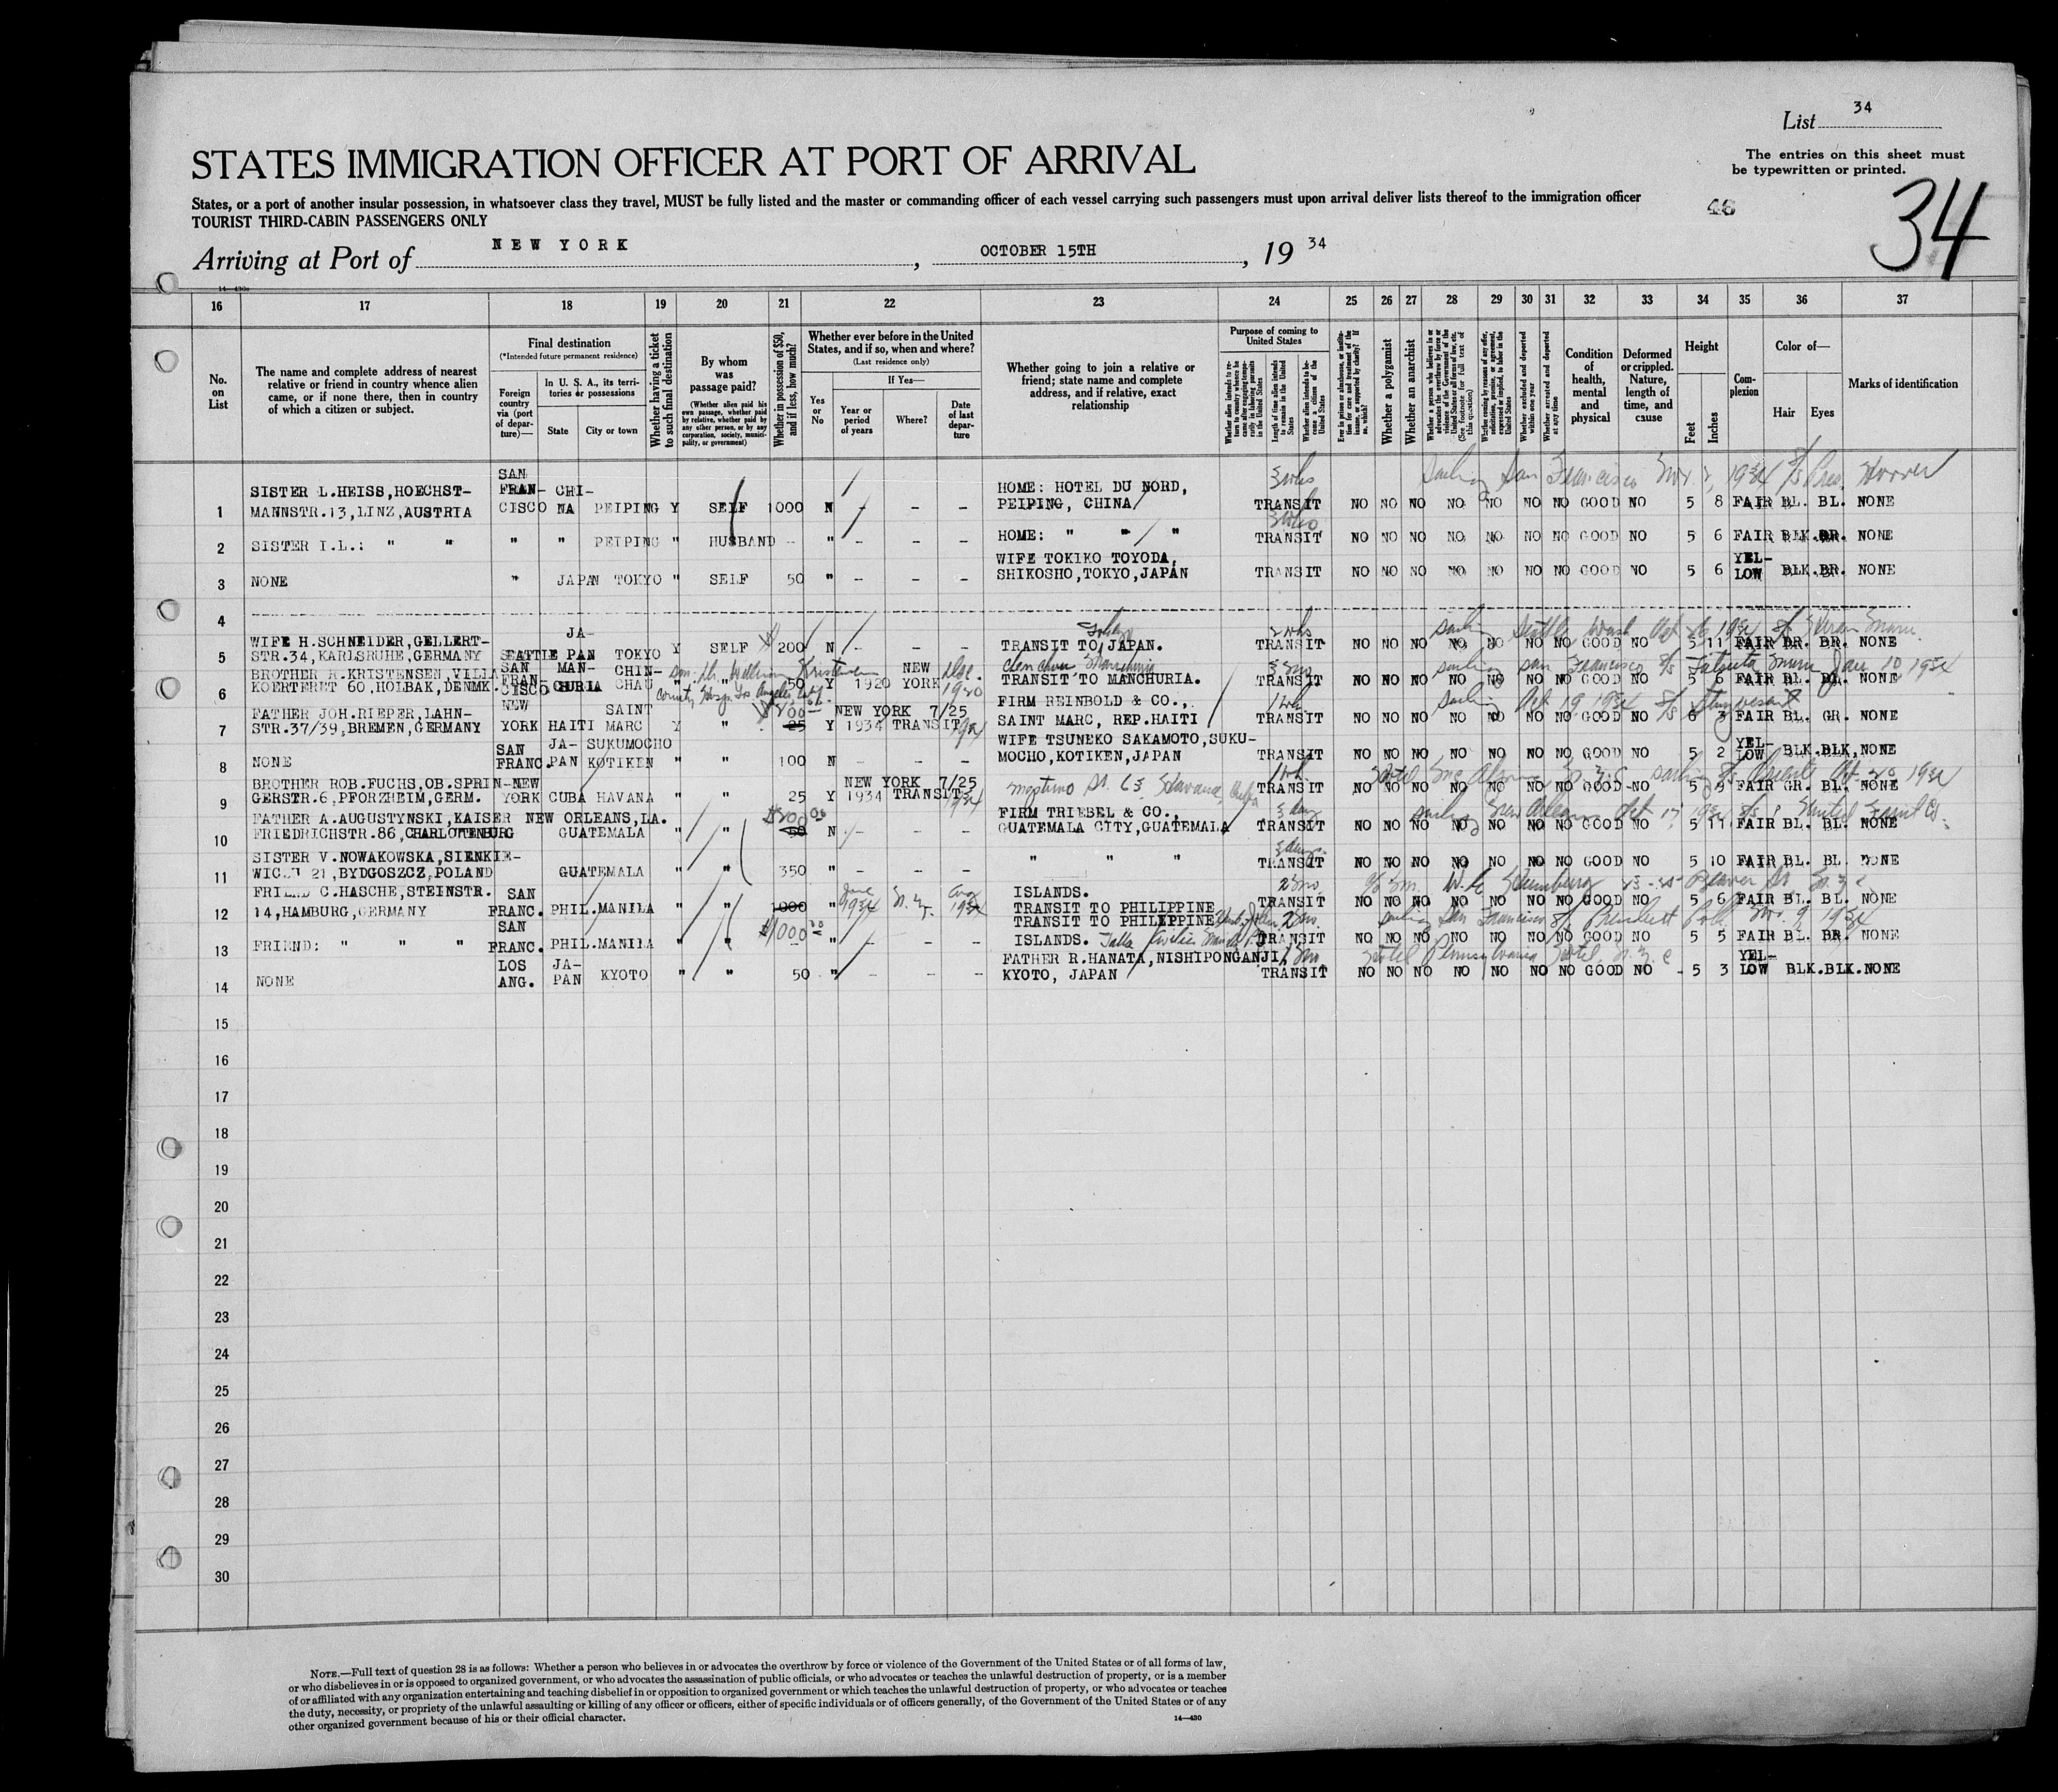 List 34
The entries on this sheet must
be typewritten or printed.
STATES IMMIGRATION OFFICER AT PORT OF ARRIVAL
States, or a port of another insular possession, in whatsoever class they travel, MUST be fully listed and the master or commanding officer of each vessel carrying such passengers must upon arrival deliver lists thereof to the immigration officer
TOURIST THIRD-CABIN PASSENGERS ONLY
46
34
Arriving at Port of NEW YORK, OCTOBER 15TH, 19 34
14—430a
16 17 18 19 20 21 22 23 24 25 26 27 28 29 30 31 32 33 34 35 36 37
No. on List
The name and complete address of nearest relative or friend in country whence alien came, or if none there, then in country of which a citizen or subject.
Final destination
(*Intended future permanent residence)
Foreign country via (port of departure)—
In U. S. A., its territories or possessions
State
City or town
Whether having a ticket to such final destination
By whom was passage paid?
(Whether alien paid his own passage, whether paid by relative, whether paid by any other person, or by any corporation, society, municipality, or government)
Whether in possession of $50, and if less, how much?
Whether ever before in the United States, and if so, when and where?
(Last residence only)
Yes or No
If Yes—
Year or period of years
Where?
Date of last departure
Whether going to join a relative or friend; state name and complete address, and if relative, exact relationship
Purpose of coming to United States
Length of time alien intends to remain in the United States
Whether alien intends to become a citizen of the United States
Whether a polygamist
Whether an anarchist
(See footnote for full text of this question)
Whether excluded and deported within one year
Whether arrested and deported at any time
Condition of health, mental and physical
Deformed or crippled. Nature, length of time, and cause
Height
Feet
Inches
Complexion
Color of—
Hair
Eyes
Marks of identification
1 SISTER L.HEISS,HOECHST-
MANNSTR.13,LINZ,AUSTRIA SAN FRAN-CISCO CHI-NA PEIPING Y SELF 1000 N - - - HOME: HOTEL DU NORD,
PEIPING, CHINA TRANSIT NO NO NO NO NO NO NO GOOD NO 5 8 FAIR BL. BL. NONE
sailing San Francisco 1934 S/S Pres. Hoover
2 SISTER I.L.: " " " " PEIPING " HUSBAND - " - - - HOME: " " " TRANSIT NO NO NO NO NO NO NO GOOD NO 5 6 FAIR BLK.BR. NONE
3 NONE " JAPAN TOKYO " SELF 50 " - - - WIFE TOKIKO TOYODA,
SHIKOSHO,TOKYO,JAPAN TRANSIT NO NO NO NO NO NO NO GOOD NO 5 6 YEL-LOW BLK.BR. NONE
4
5 WIFE H.SCHNEIDER,GELLERT-
STR.34,KARLSRUHE,GERMANY SEATTLE JA-PAN TOKYO Y SELF 200 N - - - TRANSIT TO JAPAN. TRANSIT NO NO NO NO NO NO NO GOOD NO 5 11 FAIR BR. BR. NONE
Tokyo 2 wks sailing Seattle Wash Oct 1934 S/S Maru
6 BROTHER A.KRISTENSEN,VILLA
KOERTERET 60,HOLBAK,DENMK. SAN FRAN-CISCO MAN-CHURIA CHIN-CHAU " " 50 Y 1920 NEW YORK Dec. 1920 TRANSIT TO MANCHURIA. TRANSIT NO NO NO NO NO NO NO GOOD NO 5 6 FAIR BL. BL. NONE
William Kristensen County Hosp. Los Angeles
sailing San Francisco S/S Maru Jan 10 1934
7 FATHER JOH.RIEPER,LAHN-
STR.37/39,BREMEN,GERMANY NEW YORK HAITI SAINT MARC Y " 25 Y NEW YORK 7/25
1934 TRANSIT 1934 FIRM REINBOLD & CO.,
SAINT MARC, REP.HAITI TRANSIT NO NO NO NO NO NO NO GOOD NO 6 3 FAIR BL. GR. NONE
1 wk. sailing Oct 19 1934 S/S Stuyvesant
8 NONE SAN FRANC. JA-PAN SUKUMOCHO KOTIKEN " " 100 N - - - WIFE TSUNEKO SAKAMOTO,SUKU-
MOCHO,KOTIKEN,JAPAN TRANSIT NO NO NO NO NO NO NO GOOD NO 5 2 YEL-LOW BLK.BLK.NONE
9 BROTHER ROB.FUCHS,OB.SPRIN-
GERSTR.6,PFORZHEIM,GERM. NEW YORK CUBA HAVANA " " 25 Y NEW YORK 7/25
1934 TRANSIT 1934 Havana, Cuba TRANSIT NO NO NO NO NO NO NO GOOD NO 5 9 FAIR GR. BL. NONE
1 wk. Hotel N.Y.C sailing S/S Oriente Oct. 20 1934
10 FATHER A.AUGUSTYNSKI,KAISER
FRIEDRICHSTR.86,CHARLOTTENBURG NEW ORLEANS,LA. GUATEMALA " " 50 $200 00 N - - - FIRM TRIEBEL & CO.,
GUATEMALA CITY,GUATEMALA TRANSIT NO NO NO NO NO NO NO GOOD NO 5 11 FAIR BL. BL. NONE
3 days sailing New Orleans Oct 17 1934 S/S United Fruit Co.
11 SISTER V.NOWAKOWSKA,SIENKIE-
WICZA 21,BYDGOSZCZ,POLAND GUATEMALA " " 350 " - - - " " " TRANSIT NO NO NO NO NO NO NO GOOD NO 5 10 FAIR BL. BL. NONE
3 days
12 FRIEND C.HASCHE,STEINSTR.
14,HAMBURG,GERMANY SAN FRANC. PHIL. MANILA " " 1000 " June 1934 N.Y. Aug 1934 ISLANDS.
TRANSIT TO PHILIPPINE TRANSIT NO NO NO NO NO NO NO GOOD NO 5 6 FAIR BL. BL. NONE
2 mo. Beaver St. N.Y.C
13 FRIEND: " " " SAN FRANC. PHIL. MANILA " " $1000 00 - " - - - TRANSIT TO PHILIPPINE
ISLANDS. TRANSIT NO NO NO NO NO NO NO GOOD NO 5 5 FAIR BL. BR. NONE
2 mo. sailing San Francisco S/S President Polk Nov. 9 1934
14 NONE LOS ANG. JA-PAN KYOTO " " 50 " - - - FATHER R.HANATA,NISHIPONGANJI,
KYOTO, JAPAN TRANSIT NO NO NO NO NO NO NO GOOD NO 5 3 YEL-LOW BLK.BLK.NONE
1 mo Hotel Pennsylvania Hotel, N.Y.C
15
16
17
18
19
20
21
22
23
24
25
26
27
28
29
30
NOTE.—Full text of question 28 is as follows: Whether a person who believes in or advocates the overthrow by force or violence of the Government of the United States or of all forms of law,
or who disbelieves in or is opposed to organized government, or who advocates the assassination of public officials, or who advocates or teaches the unlawful destruction of property, or is a member
of or affiliated with any organization entertaining and teaching disbelief in or opposition to organized government or which teaches the unlawful destruction of property, or who advocates or teaches
the duty, necessity, or propriety of the unlawful assaulting or killing of any officer or officers, either of specific individuals or of officers generally, of the Government of the United States or of any
other organized government because of his or their official character.
14—430